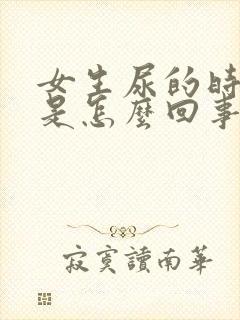 女生尿的時
是怎麼回事
寂寞讀南華